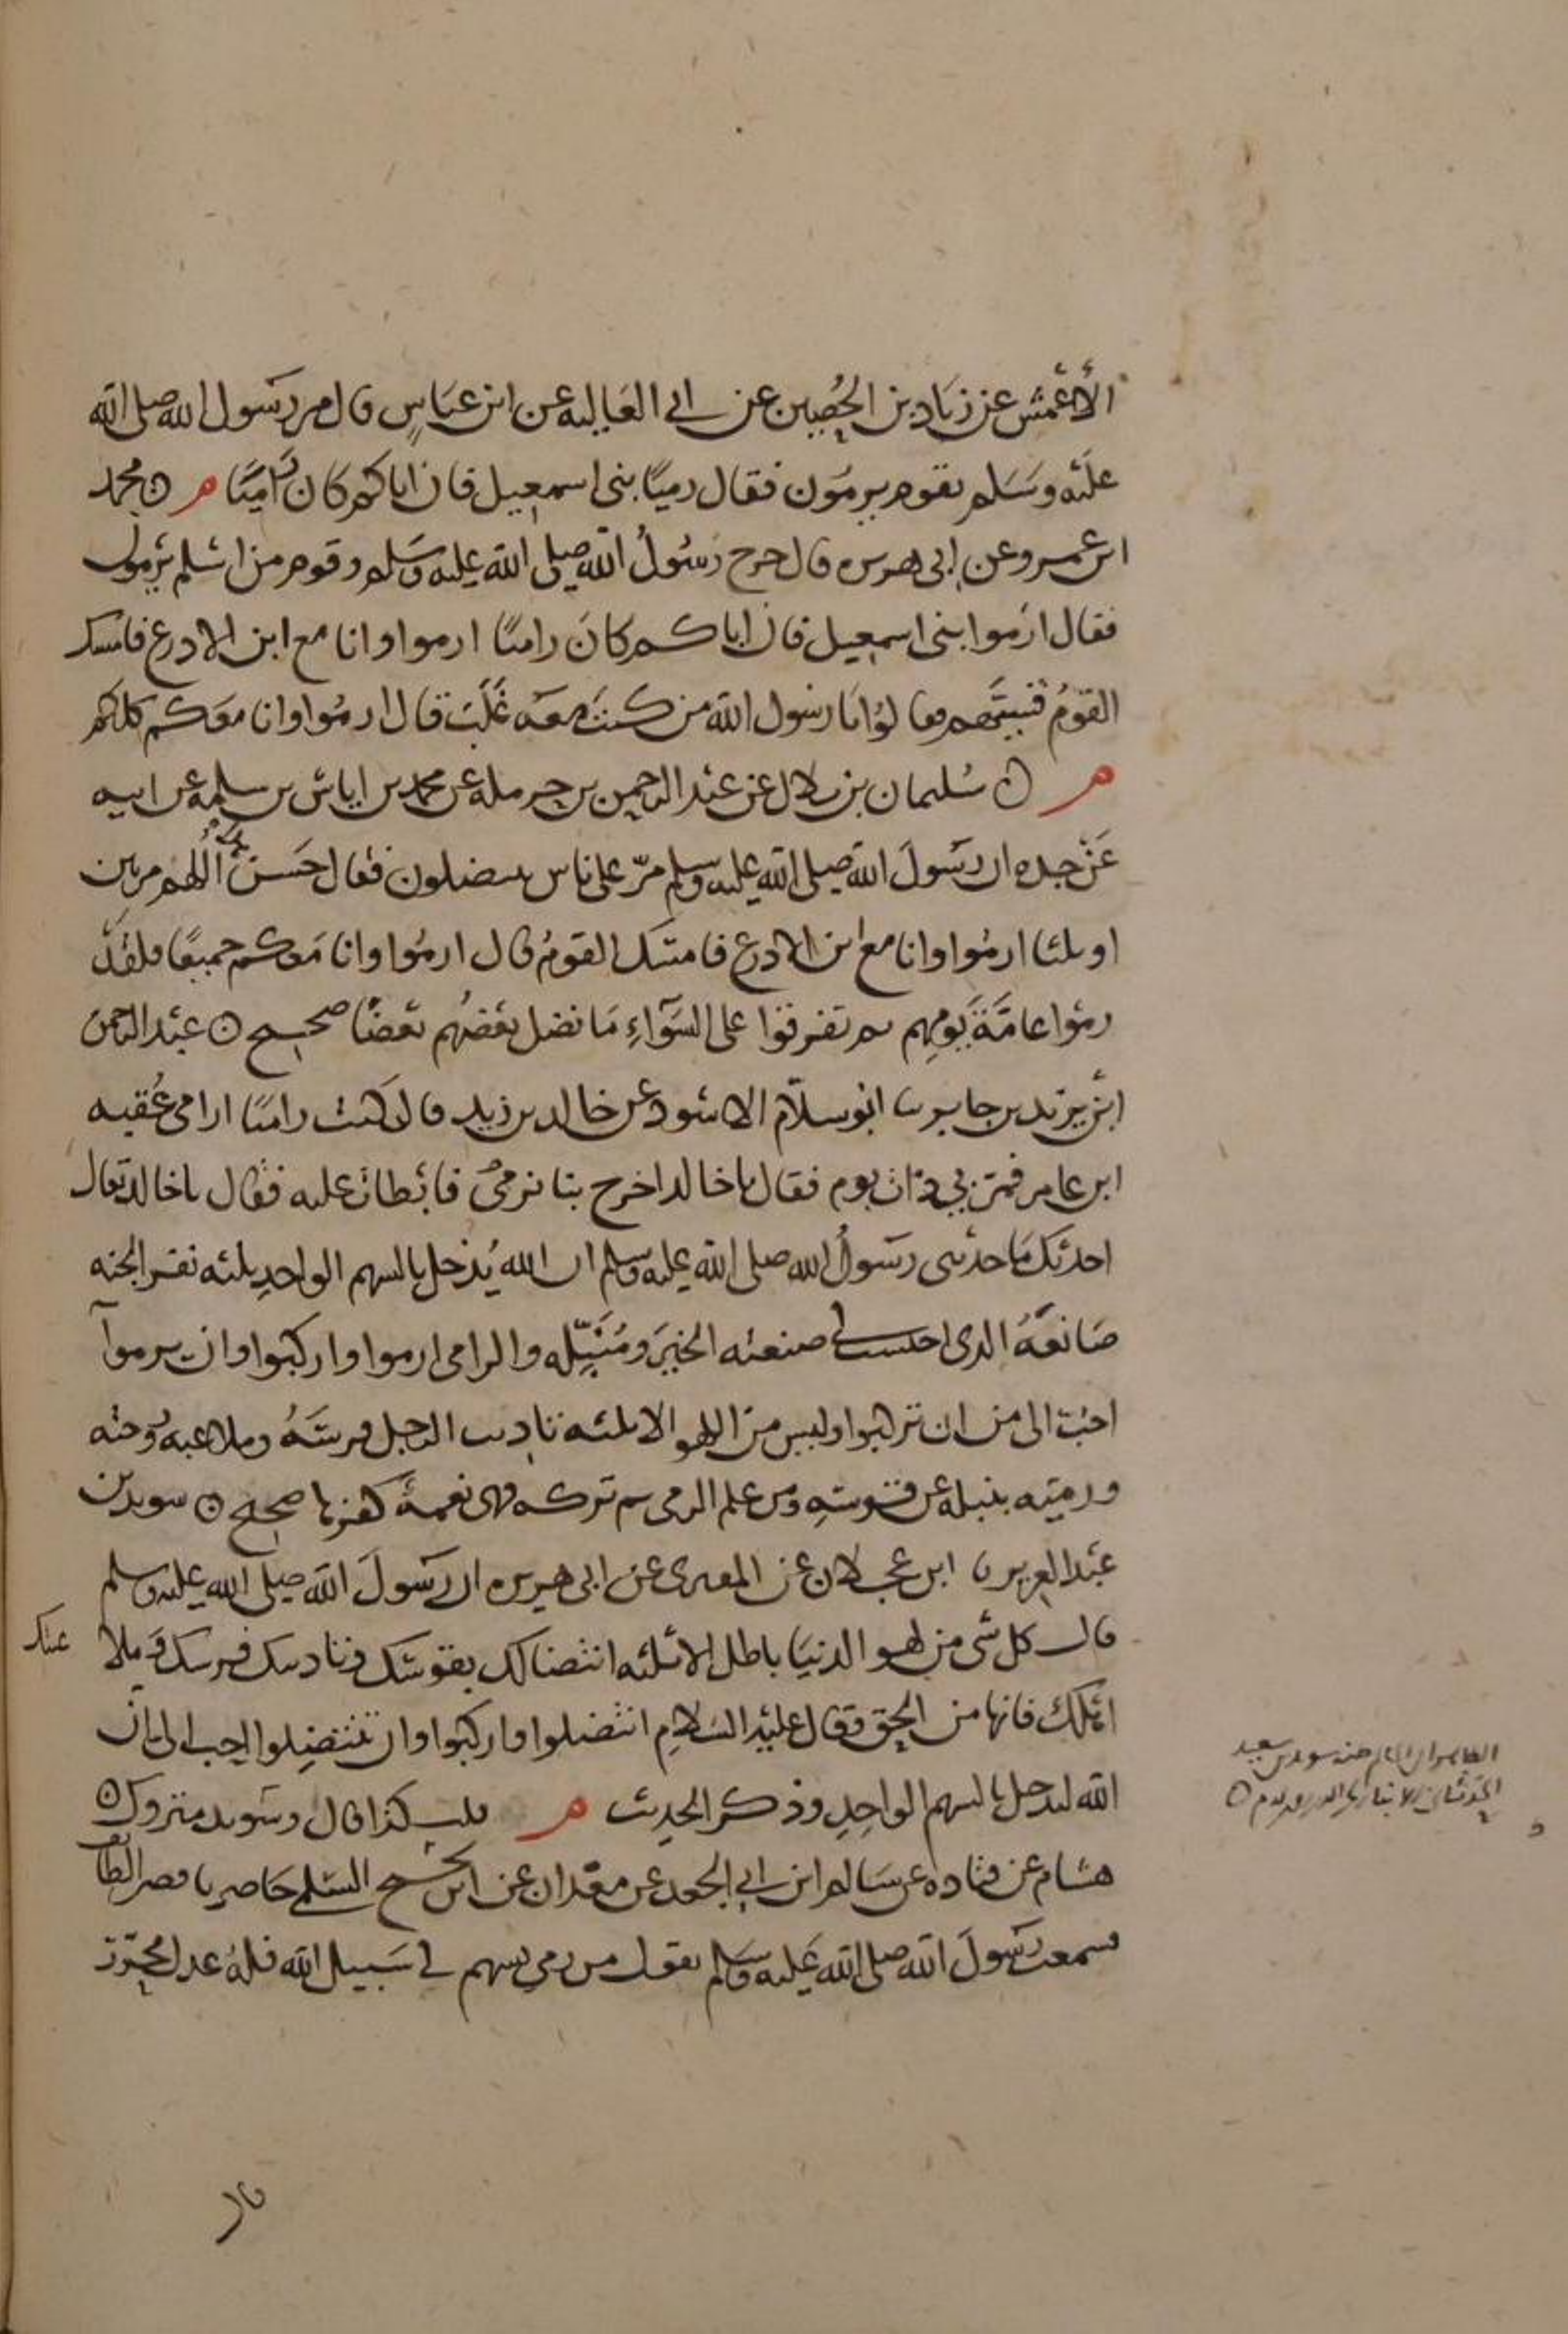 الأعمش عن زياد بن الحُصين عن ابي العالية عن ابن عباس قال مر رسول الله صلى الله
عليه وسلم بقوم يرمون فقال رميًا بنى اسمعيل فان اباكم كان راميًا م ن محمد
ابن عمرو عن ابى هريرة قال خرج رسولُ الله صلى الله عليه وسلم وقوم من اسلم يرمون
فقال ارموا بنى اسمعيل فان اباكم كان راميًا ارموا وانا مع ابن الادرع فامسك
القومُ قسيّهم فقالوا يا رسول الله من كنتَ معه غَلَبَ قال ارموا وانا معكم كلكم
م ن سُليمان بن بلال عن عبد الرحمن بن حرملة عن محمد بن اياس بن سلمة عن ابيه
عَن جده ان رسولَ الله صلى الله عليه وسلم مرّ على ناس ينتضلون فقال حَسَنٌ اللهم مرتين
او ثلثا ارمُوا وانا مع ابن الادرع فامسَك القومُ قال ارمُوا وانا معكم جميعًا فلقد
رموا عامَّةَ يَومِهم ثم تفرقوا على السَّوآءِ مَا نضل بعضُهم بعضًا صحيح ن عبد الرحمن
ابن يزيد بن جابر نا ابو سلّام الاسود عن خالد بن زيد قال كنت راميًا ارامى عُقبه
ابن عامر فمرّ بي ذات يوم فقال يا خالد اخرج بنا نرمى فابطات عليه فقال يا خالد تعال
احدثك مَا حدثنى رسولُ الله صلى الله عليه وسلم ان الله يُدخل بالسهم الواحدِ ثلثه نفر الجنه
صَانعَهُ الذى احتسب فى صنعته الخيرَ ومُنَبِّله والرامى ارموا واركبوا وان ترموآ
احبّ الى من ان تركبوا وليس من اللهو الا ثلثه تاديب الرجل فرسَهُ وملاعبهُ زوجته
ورميّه بنبله عن قوسِهِ ومن علم الرمى ثم تركه فهى نعمةٌ كفرها صحيح ن سويد بن
عبد العزيز نا ابن عجلان عن المقبرى عن ابى هريره ان رسولَ الله صلى الله عليه وسلم
قال كل شى من لهو الدنيَا باطل الا ثلثه انتضالك بقوسك وتاديبك فرسك وملا عبتك
اهلك فانها من الحق وقال عليه السلام انتضلوا واركبوا وان تنتضِلوا احب الى ان
الله ليدخل بالسهم الواحِدِ وذكر الحديث م قلت كذا قال وسويد متروك ن
هشام عن قتاده عن سَالم ابن ابي الجعد عن معدان عن ابى نجيح السّلمى حَاصرنا قصر الطائف
فسمعت رسولَ الله صلى الله عَليه وسلم يقول من رمى بسهم فى سَبيل الله فلهُ عدل محرّر
سويد بن سعيد